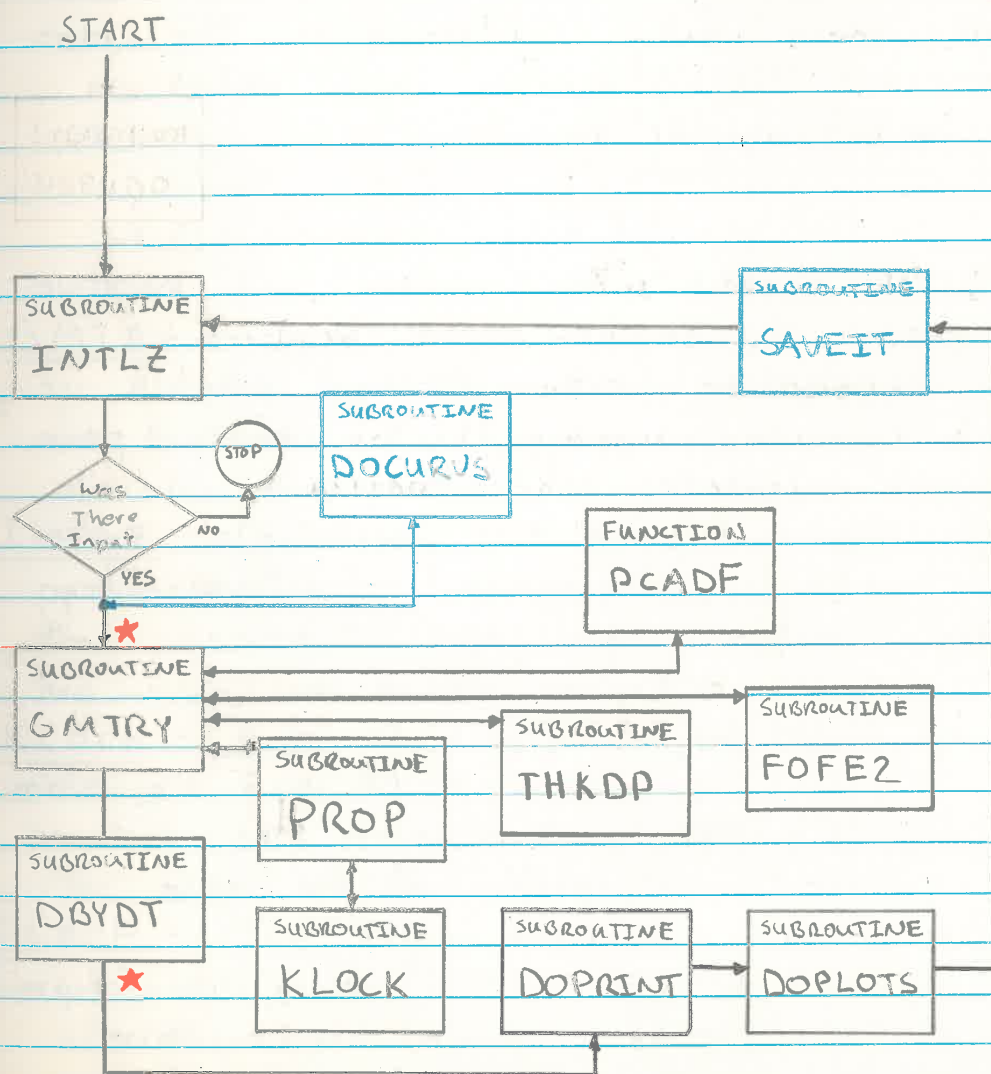 START
SUBROUTINE
INTLZ
SUBROUTINE
SAVEIT
SUBROUTINE
DOCURVS
STOP
Was
There
Input
NO
YES
FUNCTION
PCADF
SUBROUTINE
GMTRY
SUBROUTINE
PROP
SUBROUTINE
THKDP
SUBROUTINE
FOFE2
SUBROUTINE
DBYDT
SUBROUTINE
KLOCK
SUBROUTINE
DOPRINT
SUBROUTINE
DOPLOTS